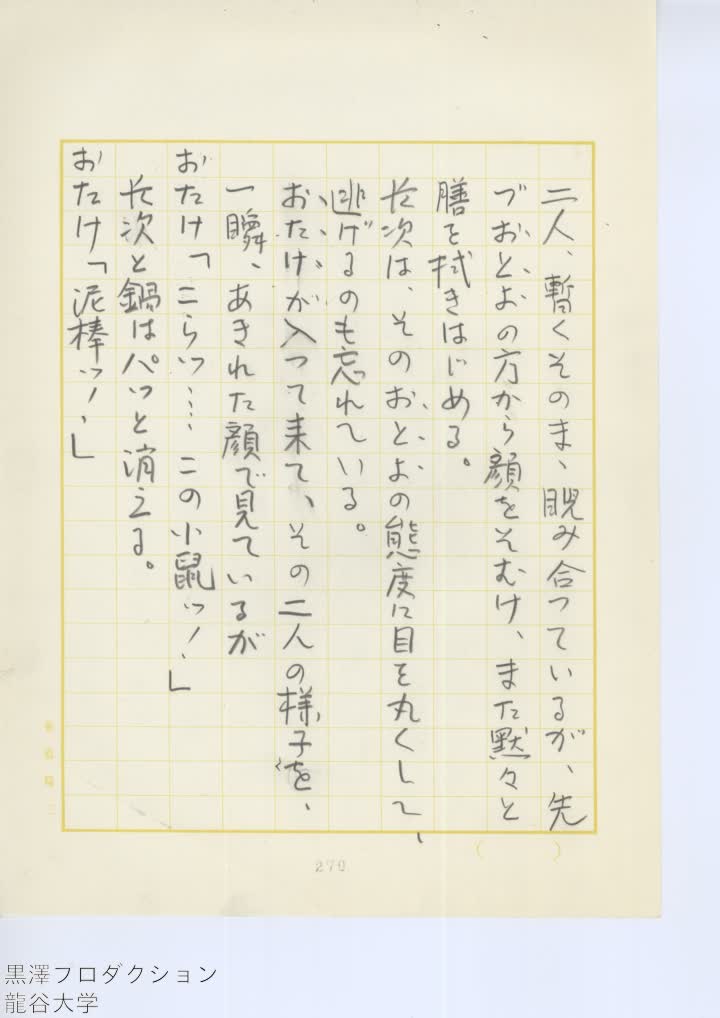 二人、暫くそのまゝ睨み合つているが、先
づおとよの方から顔をそむけ、また黙々と
膳を拭きはじめる。
長次は、そのおとよの態度に目を丸くして、
逃げるのも忘れている。
おたけが入つて来て、その二人の様子を、
一瞬、あきれた顔で見ているが
おたけ「こらッ……この小鼠ッ！」
長次と鍋はパッと消える。
おたけ「泥棒ッ！」
270
黒澤プロダクション
龍谷大学